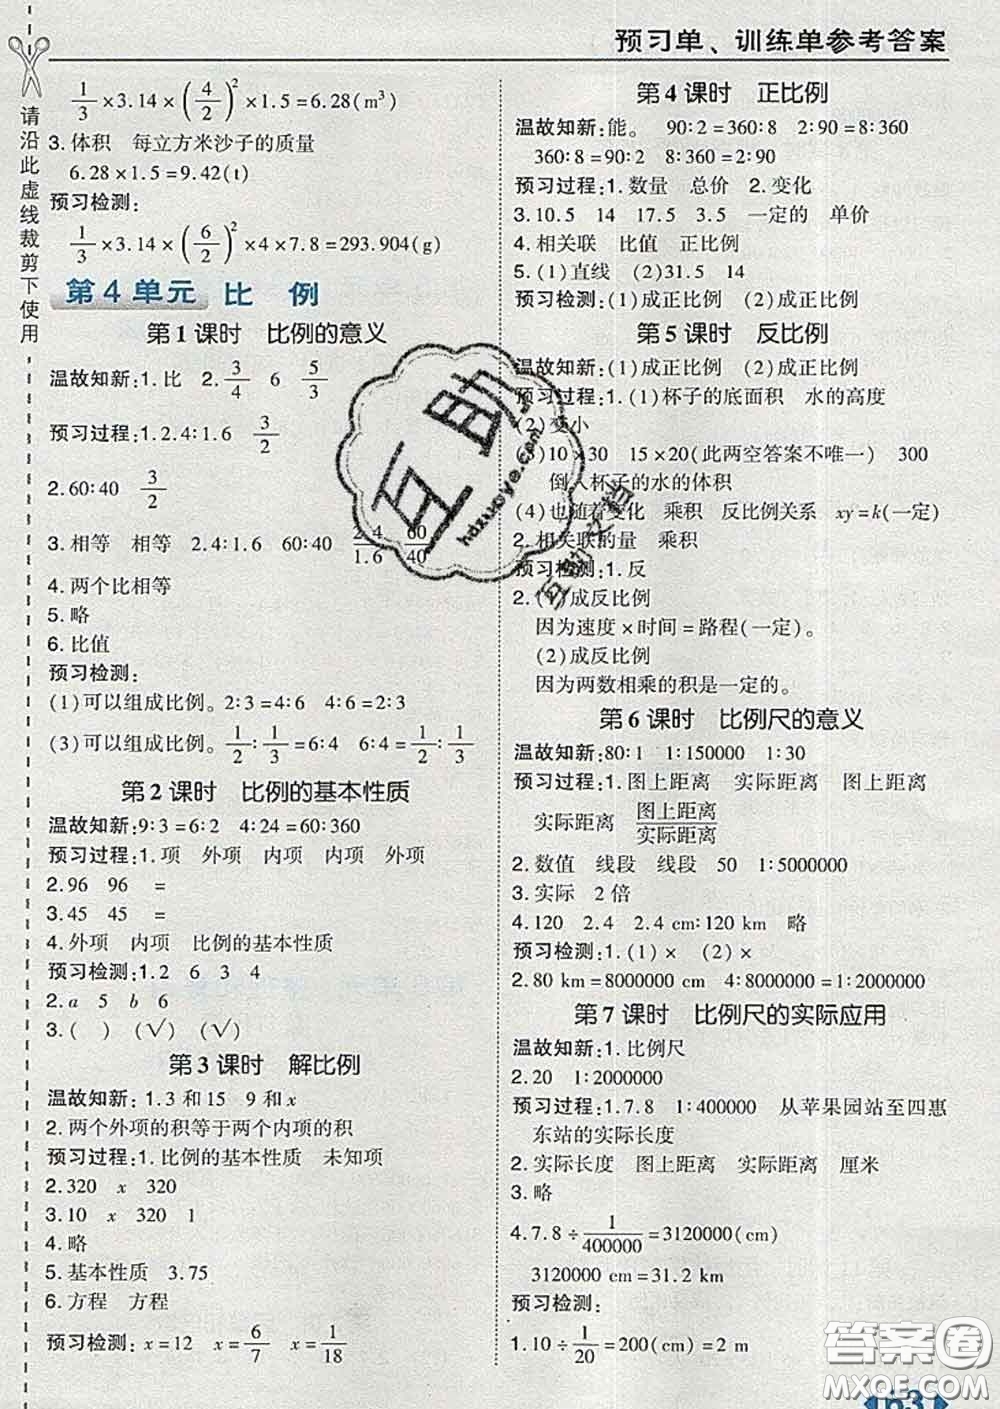 预习单、训练单参考答案
请沿此虚线裁剪下使用
1/3×3.14×(4/2)²×1.5=6.28(m³)
3.体积 每立方米沙子的质量
6.28×1.5=9.42(t)
预习检测:
1/3×3.14×(6/2)²×4×7.8=293.904(g)
第4单元 比 例
第1课时 比例的意义
温故知新:1.比 2.3/4 6 5/3
预习过程:1.2.4∶1.6 3/2
2.60∶40 3/2
3.相等 相等 2.4∶1.6 60∶40 2.4/1.6 60/40
4.两个比相等
5.略
6.比值
预习检测:
(1)可以组成比例。2∶3=4∶6 4∶6=2∶3
(3)可以组成比例。1/2∶1/3=6∶4 6∶4=1/2∶1/3
第2课时 比例的基本性质
温故知新:9∶3=6∶2 4∶24=60∶360
预习过程:1.项 外项 内项 内项 外项
2.96 96 =
3.45 45 =
4.外项 内项 比例的基本性质
预习检测:1.2 6 3 4
2.a 5 b 6
3.( ) (√) (√)
第3课时 解比例
温故知新:1.3和15 9和x
2.两个外项的积等于两个内项的积
预习过程:1.比例的基本性质 未知项
2.320 x 320
3.10 x 320 1
4.略
5.基本性质 3.75
6.方程 方程
预习检测:x=12 x=6/7 x=1/18
第4课时 正比例
温故知新:能。 90∶2=360∶8 2∶90=8∶360
360∶8=90∶2 8∶360=2∶90
预习过程:1.数量 总价 2.变化
3.10.5 14 17.5 3.5 一定的 单价
4.相关联 比值 正比例
5.(1)直线 (2)31.5 14
预习检测:(1)成正比例 (2)成正比例
第5课时 反比例
温故知新:(1)成正比例 (2)成正比例
预习过程:1.(1)杯子的底面积 水的高度
(2)变小
(3)10×30 15×20(此两空答案不唯一) 300
倒入杯子的水的体积
(4)也随着变化 乘积 反比例关系 xy=k(一定)
2.相关联的量 乘积
预习检测:1.反
2.(1)成反比例
因为速度×时间=路程(一定)。
(2)成反比例
因为两数相乘的积是一定的。
第6课时 比例尺的意义
温故知新:80∶1 1∶150000 1∶30
预习过程:1.图上距离 实际距离 图上距离
实际距离 图上距离/实际距离
2.数值 线段 线段 50 1∶5000000
3.实际 2倍
4.120 2.4 2.4 cm∶120 km 略
预习检测:1.(1)× (2)×
2.80 km=8000000 cm 4∶8000000=1∶2000000
第7课时 比例尺的实际应用
温故知新:1.比例尺
2.20 1∶2000000
预习过程:1.7.8 1∶400000 从苹果园站至四惠
东站的实际长度
2.实际长度 图上距离 实际距离 厘米
3.略
4.7.8÷1/400000=3120000(cm)
3120000 cm=31.2 km
预习检测:
1.10÷1/20=200(cm)=2 m
163
互助
hdzuoye.com
互助文档
答案圈
MXQE.COM